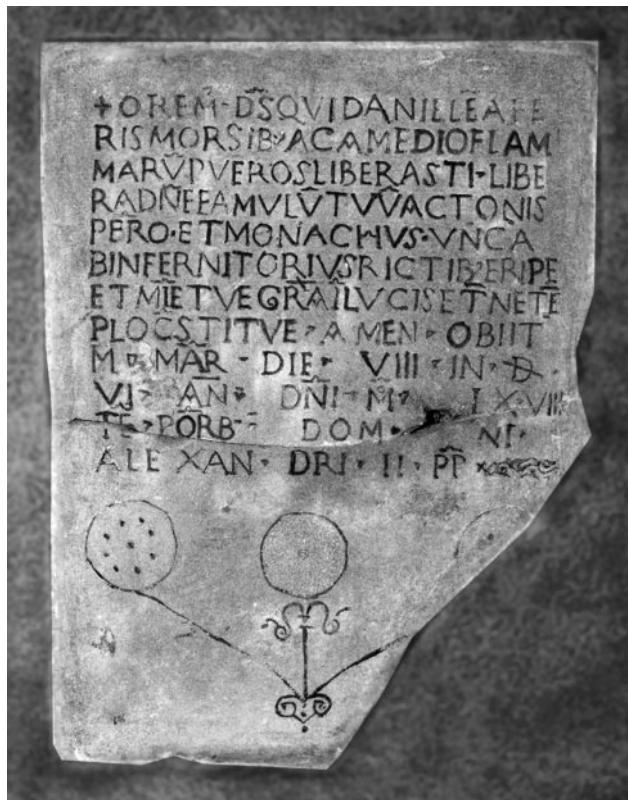 + OREM̅·D̅S̅QVIDANIELE̅AFE
RISMORSIB;ACAMEDIOFLAM
MARV̅PVEROSLIBERASTI·LIBE
RADN̅EFAMVLV̅TVV̅ACTONIS
PB̅RO·ETMONACHVS·VNCA
BINFERNITORIVSRICTIB;ERIPE
LVCISET
STITVE · AMEN · OBIIT
M · MAR̅ · DIE̅ · VIII · IN · D̶ ·
VI · AN̅ · DN̅I · M̅ · LXVIII
DOM · NI ·
ALEXAN · DRI · II · P̅P̅